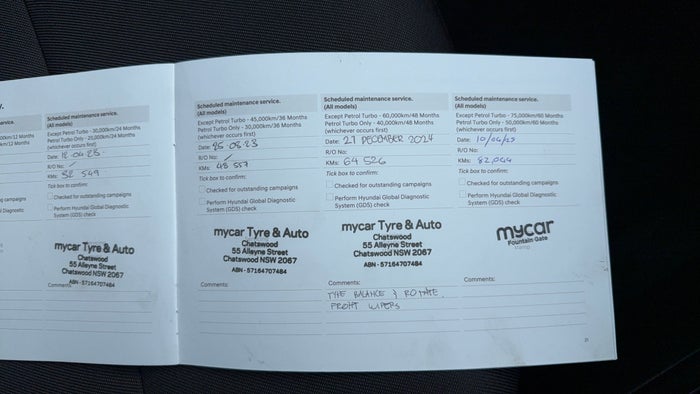 y.
000km/12 Months
Scheduled maintenance service.
(All models)
Except Petrol Turbo - 30,000km/24 Months
Petrol Turbo Only - 20,000km/24 Months
(whichever occurs first)
Date:
R/O No:
KMs: 32 549
Tick box to confirm:
Checked for outstanding campaigns
Perform Hyundai Global Diagnostic
System (GDS) check
mycar Tyre & Auto
Chatswood
55 Alleyne Street
Chatswood NSW 2067
ABN - 57164707484
Comments:
Scheduled maintenance service.
(All models)
Except Petrol Turbo - 45,000km/36 Months
Petrol Turbo Only - 30,000km/36 Months
(whichever occurs first)
Date: 25 08 23
R/O No:
KMs: 48 557
Tick box to confirm:
Checked for outstanding campaigns
Perform Hyundai Global Diagnostic
System (GDS) check
mycar Tyre & Auto
Chatswood
55 Alleyne Street
Chatswood NSW 2067
ABN - 57164707484
Comments:
Scheduled maintenance service.
(All models)
Except Petrol Turbo - 60,000km/48 Months
Petrol Turbo Only - 40,000km/48 Months
(whichever occurs first)
Date: 27 DECEMBER 2024
R/O No:
KMs: 64 526
Tick box to confirm:
Checked for outstanding campaigns
Perform Hyundai Global Diagnostic
System (GDS) check
mycar Tyre & Auto
Chatswood
55 Alleyne Street
Chatswood NSW 2067
ABN - 57164707484
Comments:
TYRE BALANCE & ROTATE.
FRONT WIPERS
Scheduled maintenance service.
(All models)
Except Petrol Turbo - 75,000km/60 Months
Petrol Turbo Only - 50,000km/60 Months
(whichever occurs first)
Date:
R/O No:
KMs: 82,044
Tick box to confirm:
Checked for outstanding campaigns
Perform Hyundai Global Diagnostic
System (GDS) check
mycar
Fountain Gate
Comments:
21